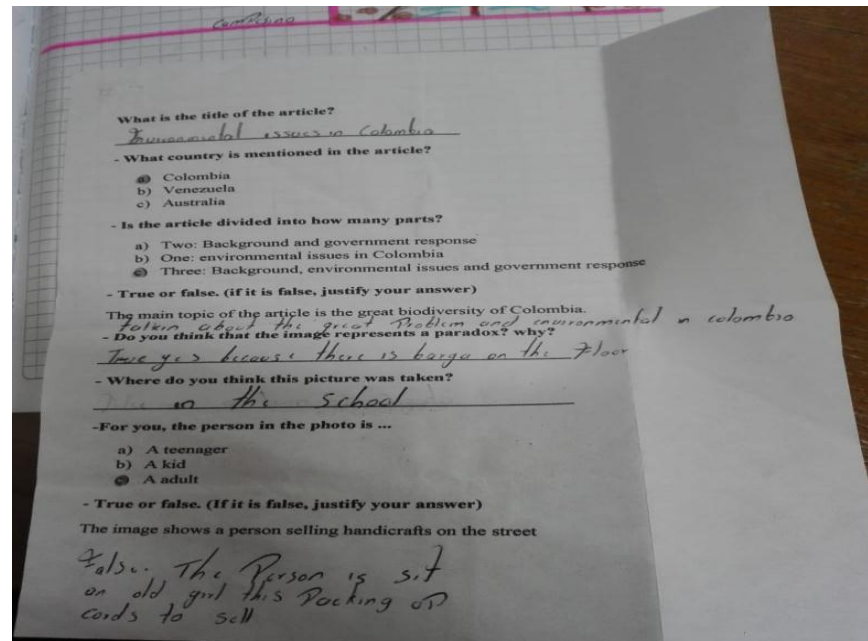 Campesino
What is the title of the article?
issues in Colombia
- What country is mentioned in the article?
a) Colombia
b) Venezuela
c) Australia
- Is the article divided into how many parts?
a) Two: Background and government response
b) One: environmental issues in Colombia
c) Three: Background, environmental issues and government response
- True or false. (if it is false, justify your answer)
The main topic of the article is the great biodiversity of Colombia.
talkin about the great Problem and environmental in colombia
- Do you think that the image represents a paradox? why?
True yes because there is barga on the Floor
- Where do you think this picture was taken?
in the School
-For you, the person in the photo is ...
a) A teenager
b) A kid
c) A adult
- True or false. (If it is false, justify your answer)
The image shows a person selling handicrafts on the street
False. The Person is sit
on old girl this Packing
cords to sell